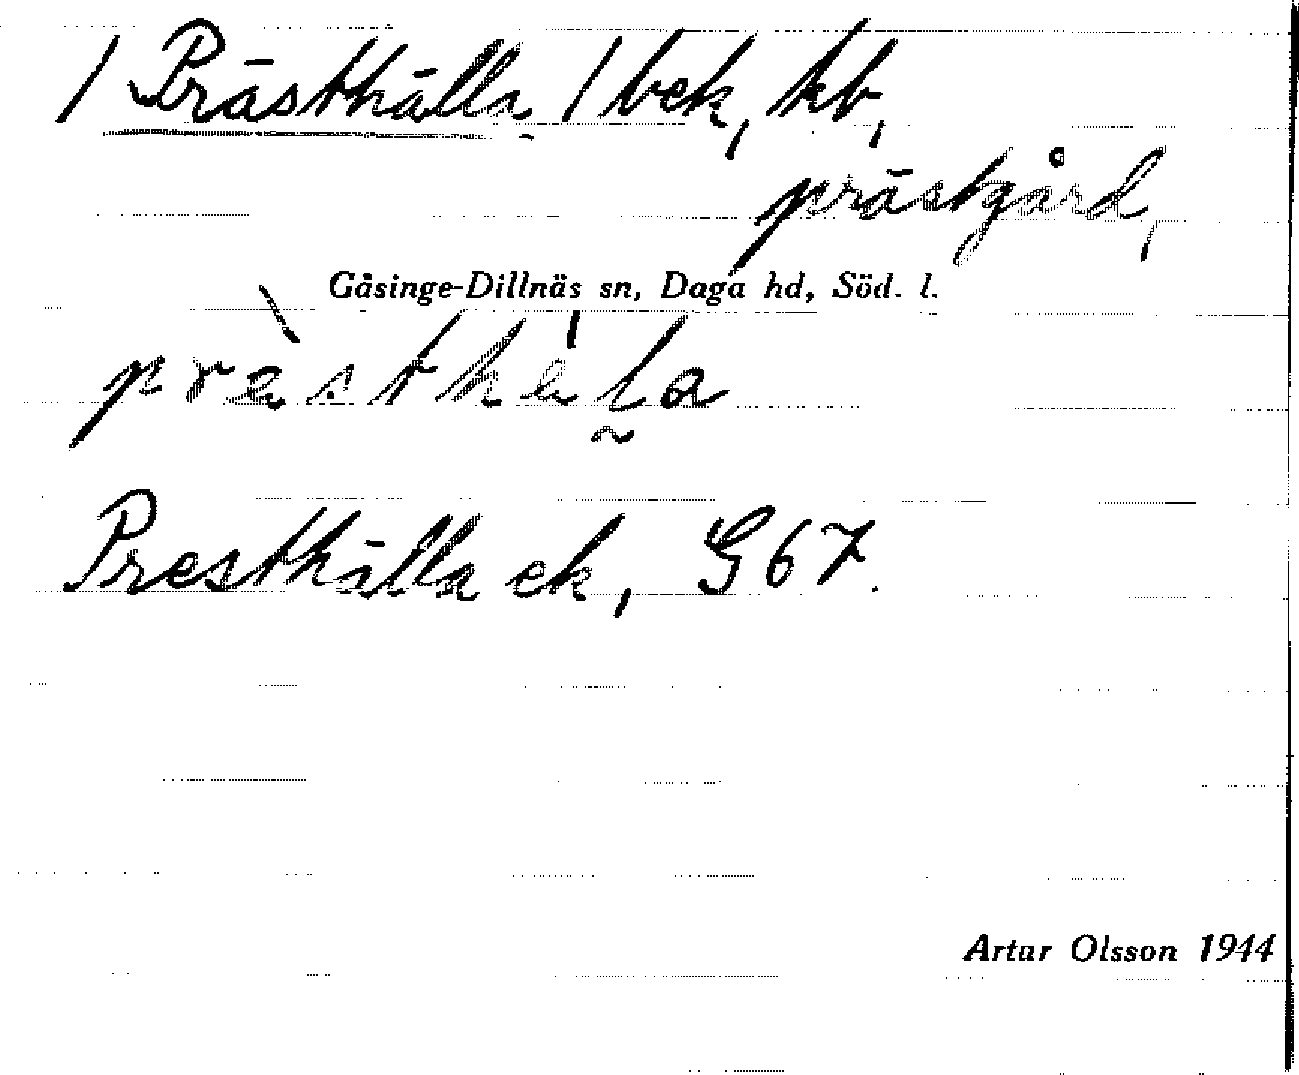 / Prästhälla / bek, kb,
prästgård,
Gåsinge-Dillnäs sn, Daga hd, Söd. l.
prèsthéla
Presthälla ek, G 67.
Artur Olsson 1944